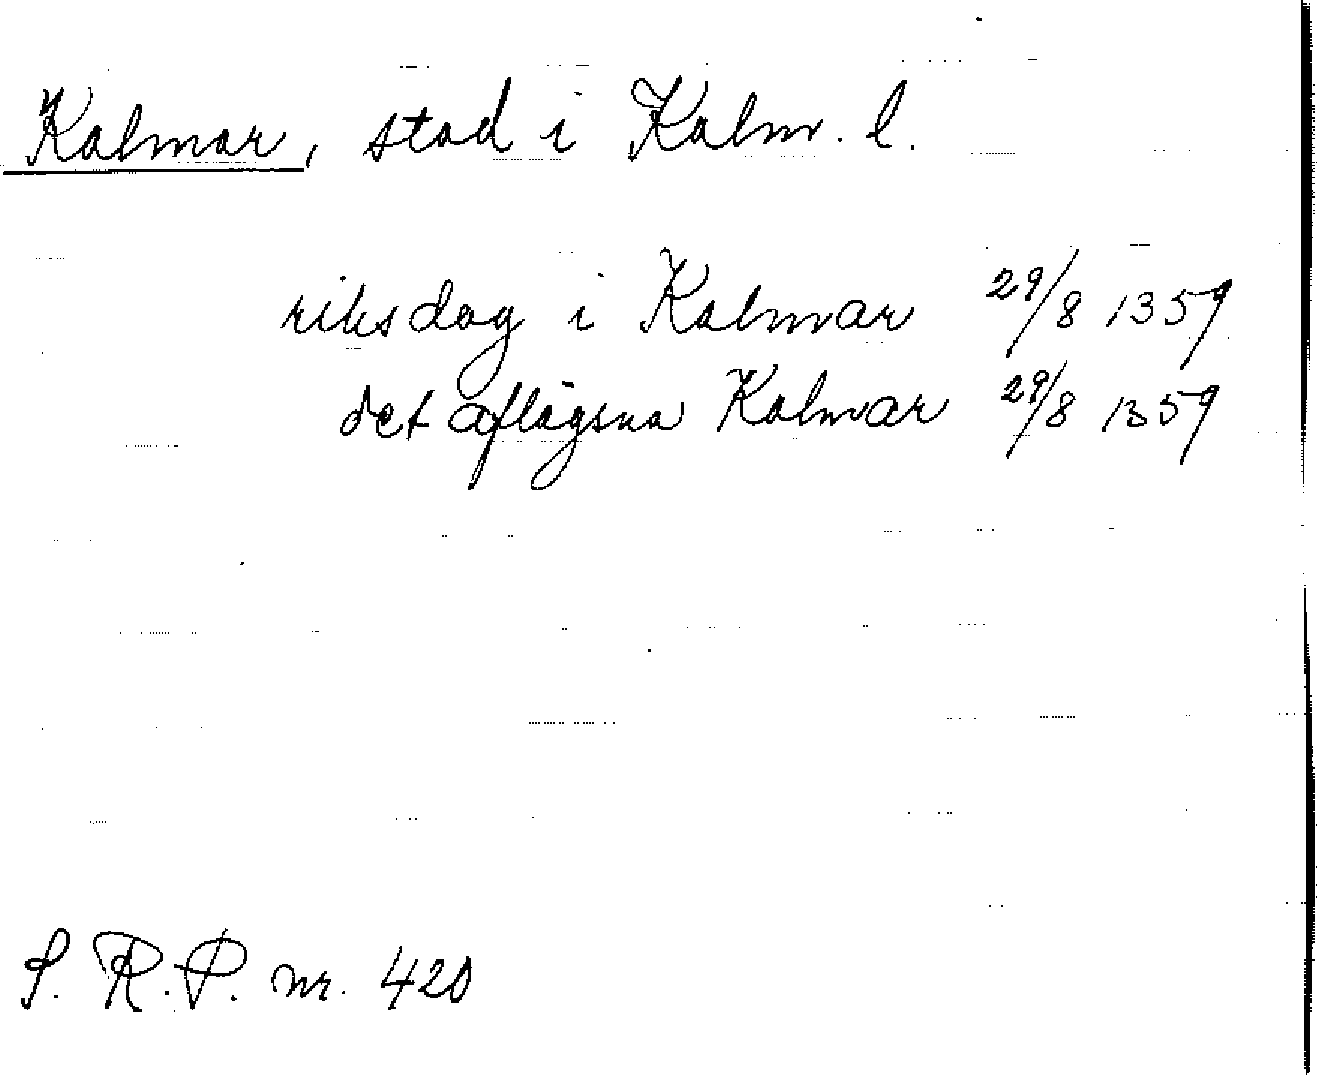 Kalmar, stad i Kalm. l.
riksdag i Kalmar 29/8 1359
det aflägsna Kalmar 29/8 1359
S. R. P. nr. 420